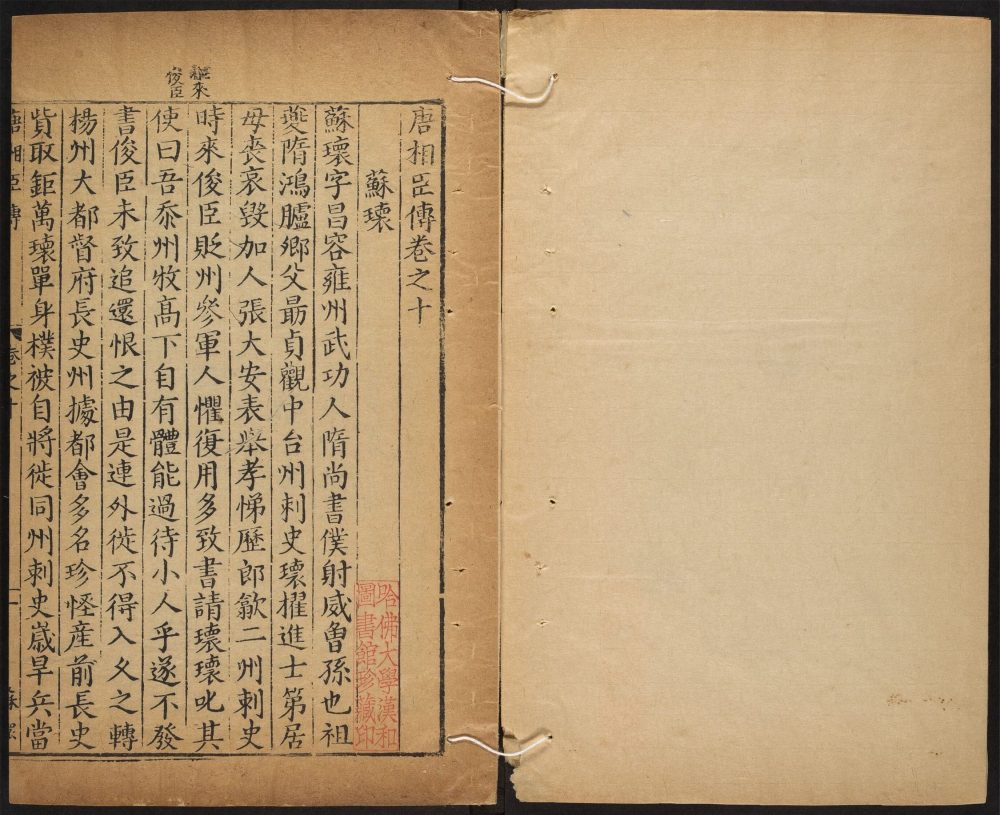 唐相臣傳卷之十
蘇瓌
蘇瓌字昌容雍州武功人隋尚書僕射威曾孫也祖
夔隋鴻臚卿父最貞觀中台州刺史瓌擢進士第居
母喪哀毀加人張大安表舉孝悌歷郎歙二州刺史
時來俊臣貶州參軍人懼復用多致書請瓌瓌叱其
使曰吾忝州牧高下自有體能過待小人乎遂不發
書俊臣未致追還恨之由是連外徙不得入久之轉
揚州大都督府長史州據都會多名珍怪產前長史
貲取鉅萬瓌單身樸被自將徙同州刺史歲旱兵當
唐相臣傳 卷之十 一
來
俊臣
哈佛大學漢和
圖書館珍藏印